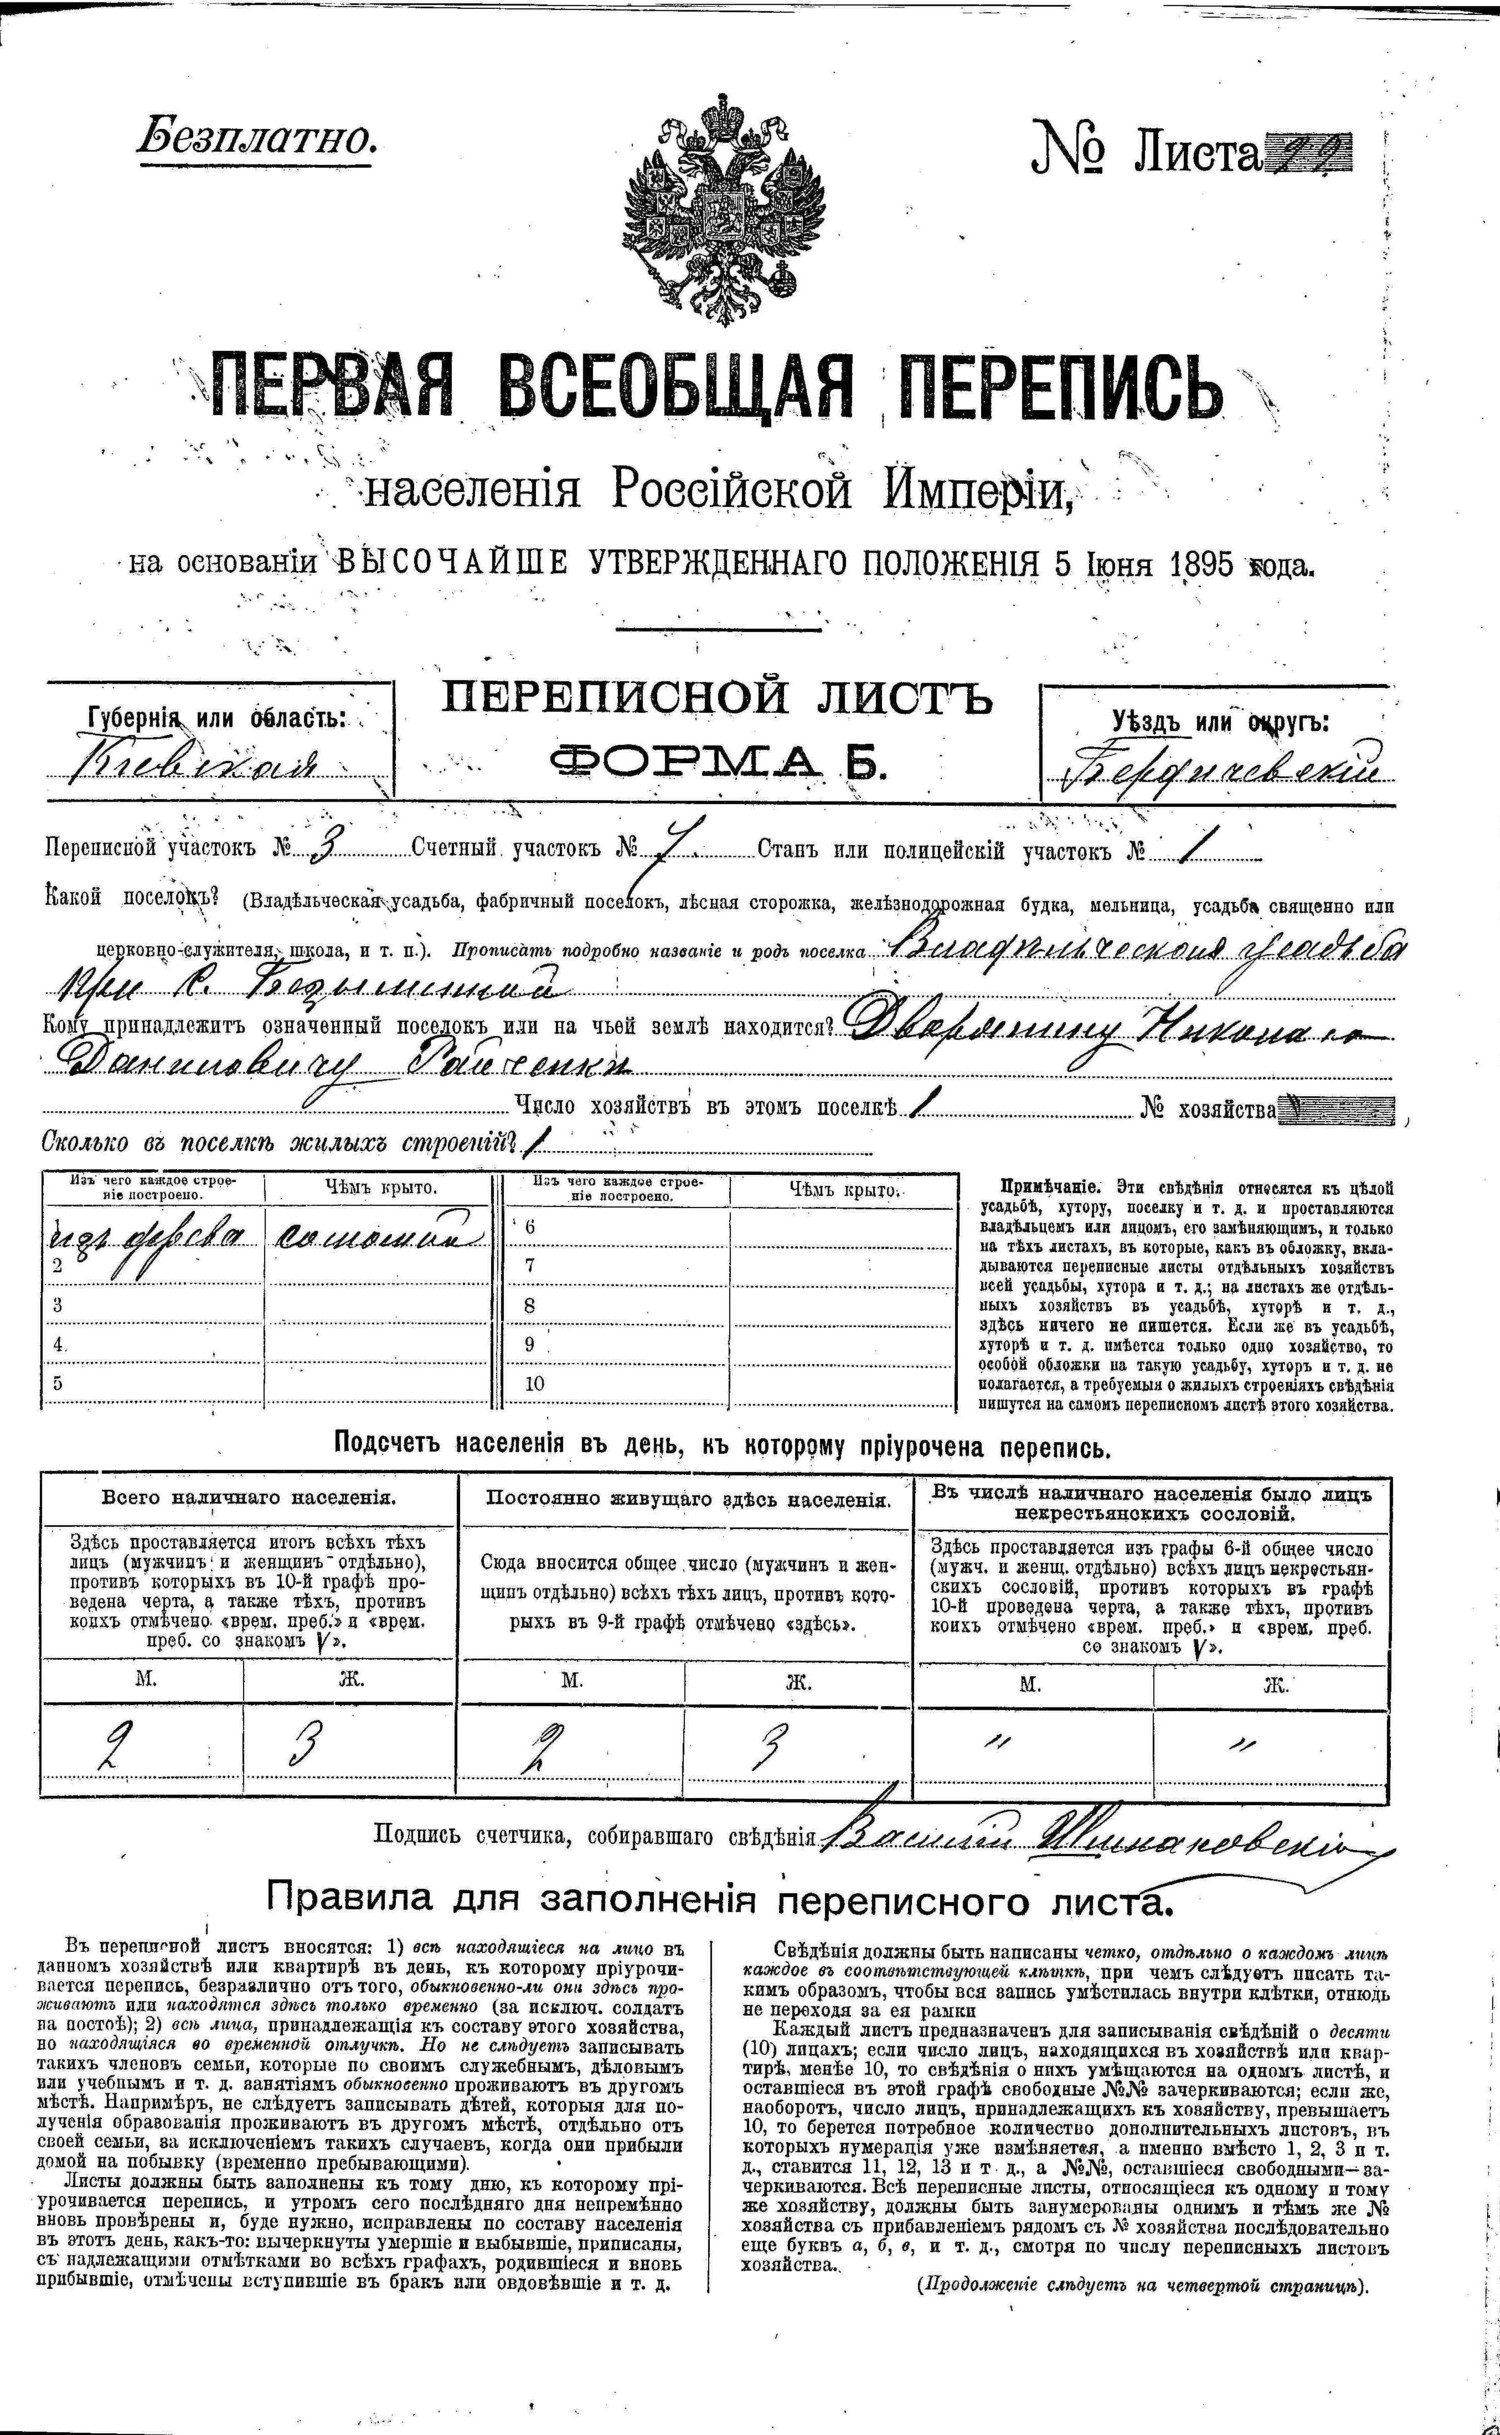 Безплатно.
№ Листа 22
ПЕРВАЯ ВСЕОБЩАЯ ПЕРЕПИСЬ
населенія Россійской Имперіи,
на основаніи ВЫСОЧАЙШЕ УТВЕРЖДЕННАГО ПОЛОЖЕНІЯ 5 Іюня 1895 года.
ПЕРЕПИСНОЙ ЛИСТЪ
ФОРМА Б.
Губернія или область:
Кіевская
Уѣздъ или округъ:
Бердичевскій
Переписной участокъ № 3 Счетный участокъ № 7. Станъ или полицейскій участокъ № 1
Какой поселокъ? (Владѣльческая усадьба, фабричный поселокъ, лѣсная сторожка, желѣзнодорожная будка, мельница, усадьба священно или
церковно-служителя, школа, и т. п.). Прописать подробно названіе и родъ поселка Владѣльческая усадьба
при с.
Кому принадлежитъ означенный поселокъ или на чьей землѣ находится? Дворянину Николаю
Даниловичу
Число хозяйствъ въ этомъ поселкѣ 1 № хозяйства
Сколько въ поселкѣ жилыхъ строеній? 1
Изъ чего каждое строе-
ніе построено.
Чѣмъ крыто.
Изъ чего каждое строе-
ніе построено.
Чѣмъ крыто.
изъ дерева соломой
6
2
7
3
8
4.
9
5
10
Примѣчаніе. Эти свѣдѣнія относятся къ цѣлой
усадьбѣ, хутору, поселку и т. д. и проставляются
владѣльцемъ или лицомъ, его замѣняющимъ, и только
на тѣхъ листахъ, въ которые, какъ въ обложку, вкла-
дываются переписные листы отдѣльныхъ хозяйствъ
всей усадьбы, хутора и т. д.; на листахъ же отдѣль-
ныхъ хозяйствъ въ усадьбѣ, хуторѣ и т. д.,
здѣсь ничего не пишется. Если же въ усадьбѣ,
хуторѣ и т. д. имѣется только одно хозяйство, то
особой обложки на такую усадьбу, хуторъ и т. д. не
полагается, а требуемыя о жилыхъ строеніяхъ свѣдѣнія
пишутся на самомъ переписномъ листѣ этого хозяйства.
Подсчетъ населенія въ день, къ которому пріурочена перепись.
Всего наличнаго населенія.
Здѣсь проставляется итогъ всѣхъ тѣхъ
лицъ (мужчинъ и женщинъ отдѣльно),
противъ которыхъ въ 10-й графѣ про-
ведена черта, а также тѣхъ, противъ
коихъ отмѣчено «врем. преб.» и «врем.
преб. со знакомъ V».
Постоянно живущаго здѣсь населенія.
Сюда вносится общее число (мужчинъ и жен-
щинъ отдѣльно) всѣхъ тѣхъ лицъ, противъ кото-
рыхъ въ 9-й графѣ отмѣчено «здѣсь».
Въ числѣ наличнаго населенія было лицъ
некрестьянскихъ сословій.
Здѣсь проставляется изъ графы 6-й общее число
(мужч. и женщ. отдѣльно) всѣхъ лицъ некрестьян-
скихъ сословій, противъ которыхъ въ графѣ
10-й проведена черта, а также тѣхъ, противъ
коихъ отмѣчено «врем. преб.» и «врем. преб.
со знакомъ V».
М. Ж. М. Ж. М. Ж.
2 3 2 3 " "
Подпись счетчика, собиравшаго свѣдѣнія Василій
Правила для заполненія переписного листа.
Въ переписной листъ вносятся: 1) всѣ находящіеся на лицо въ
данномъ хозяйствѣ или квартирѣ въ день, къ которому пріурочи-
вается перепись, безразлично отъ того, обыкновенно-ли они здѣсь про-
живаютъ или находятся здѣсь только временно (за исключ. солдатъ
на постоѣ); 2) всѣ лица, принадлежащія къ составу этого хозяйства,
но находящіяся во временной отлучкѣ. Но не слѣдуетъ записывать
такихъ членовъ семьи, которые по своимъ служебнымъ, дѣловымъ
или учебнымъ и т. д. занятіямъ обыкновенно проживаютъ въ другомъ
мѣстѣ. Напримѣръ, не слѣдуетъ записывать дѣтей, которыя для по-
лученія образованія проживаютъ въ другомъ мѣстѣ, отдѣльно отъ
своей семьи, за исключеніемъ такихъ случаевъ, когда они прибыли
домой на побывку (временно пребывающими).
Листы должны быть заполнены къ тому дню, къ которому прі-
урочивается перепись, и утромъ сего послѣдняго дня непремѣнно
вновь провѣрены и, буде нужно, исправлены по составу населенія
въ этотъ день, какъ-то: вычеркнуты умершіе и выбывшіе, приписаны,
съ надлежащими отмѣтками во всѣхъ графахъ, родившіеся и вновь
прибывшіе, отмѣчены вступившіе въ бракъ или овдовѣвшіе и т. д.
Свѣдѣнія должны быть написаны четко, отдѣльно о каждомъ лицѣ
каждое въ соотвѣтствующей клѣткѣ, при чемъ слѣдуетъ писать та-
кимъ образомъ, чтобы вся запись умѣстилась внутри клѣтки, отнюдь
не переходя за ея рамки
Каждый листъ предназначенъ для записыванія свѣдѣній о десяти
(10) лицахъ; если число лицъ, находящихся въ хозяйствѣ или квар-
тирѣ, менѣе 10, то свѣдѣнія о нихъ умѣщаются на одномъ листѣ, и
оставшіеся въ этой графѣ свободные №№ зачеркиваются; если же,
наоборотъ, число лицъ, принадлежащихъ къ хозяйству, превышаетъ
10, то берется потребное количество дополнительныхъ листовъ, въ
которыхъ нумерація уже измѣняется, а именно вмѣсто 1, 2, 3 и т.
д., ставится 11, 12, 13 и т д., а №№, оставшіеся свободными—за-
черкиваются. Всѣ переписные листы, относящіеся къ одному и тому
же хозяйству, должны быть занумерованы однимъ и тѣмъ же №
хозяйства съ прибавленіемъ рядомъ съ № хозяйства послѣдовательно
еще буквъ а, б, в, и т. д., смотря по числу переписныхъ листовъ
хозяйства.
(Продолженіе слѣдуетъ на четвертой страницѣ).